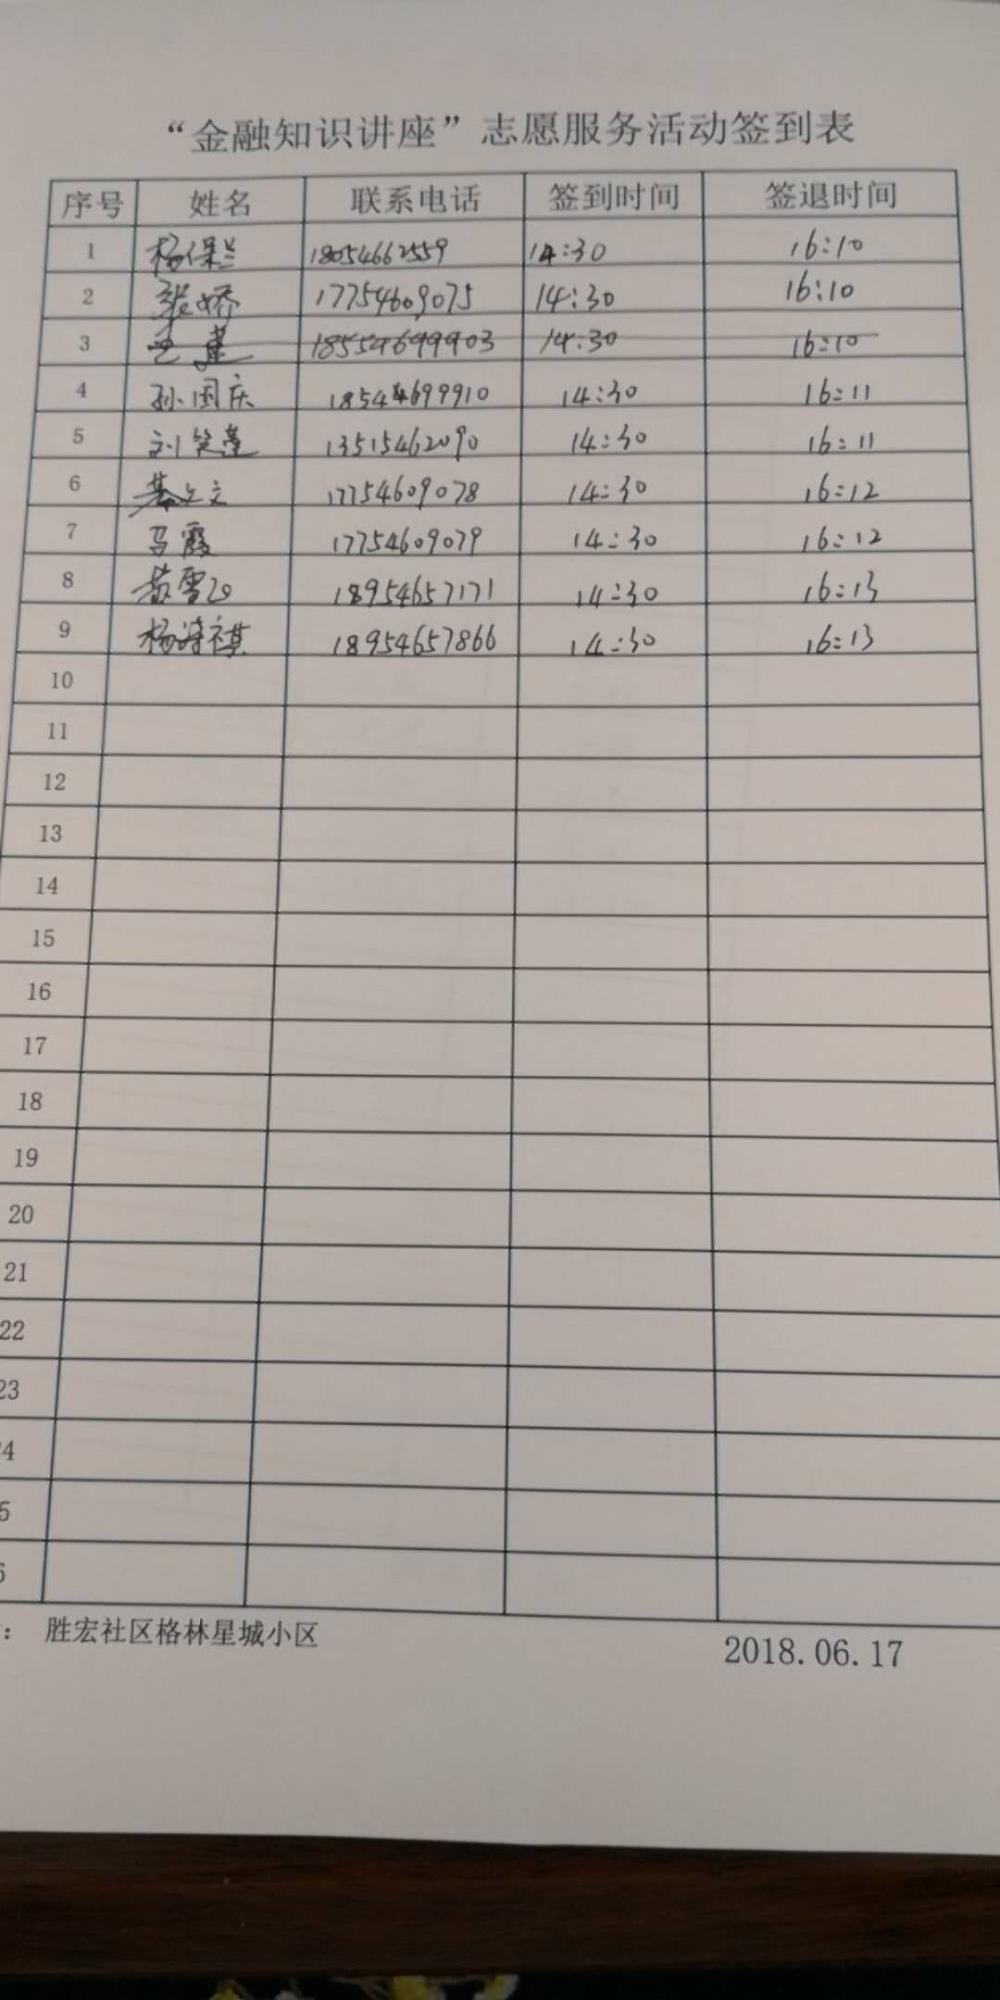 “金融知识讲座”志愿服务活动签到表
序号 姓名 联系电话 签到时间 签退时间
1 杨保兰 18054662559 14:30 16:10
2 张娇 17754609075 14:30 16:10
3 王 18554699903 14:30 16:10
4 孙国庆 18544699910 14:30 16:11
5 刘笑莲 13515462090 14:30 16:11
6 17754609078 14:30 16:12
7 马霞 17754609079 14:30 16:12
8 18954657171 14:30 16:13
9 杨诗祺 18954657866 14:30 16:13
10
11
12
13
14
15
16
17
18
19
20
21
22
23
4
5
6
： 胜宏社区格林星城小区 2018.06.17